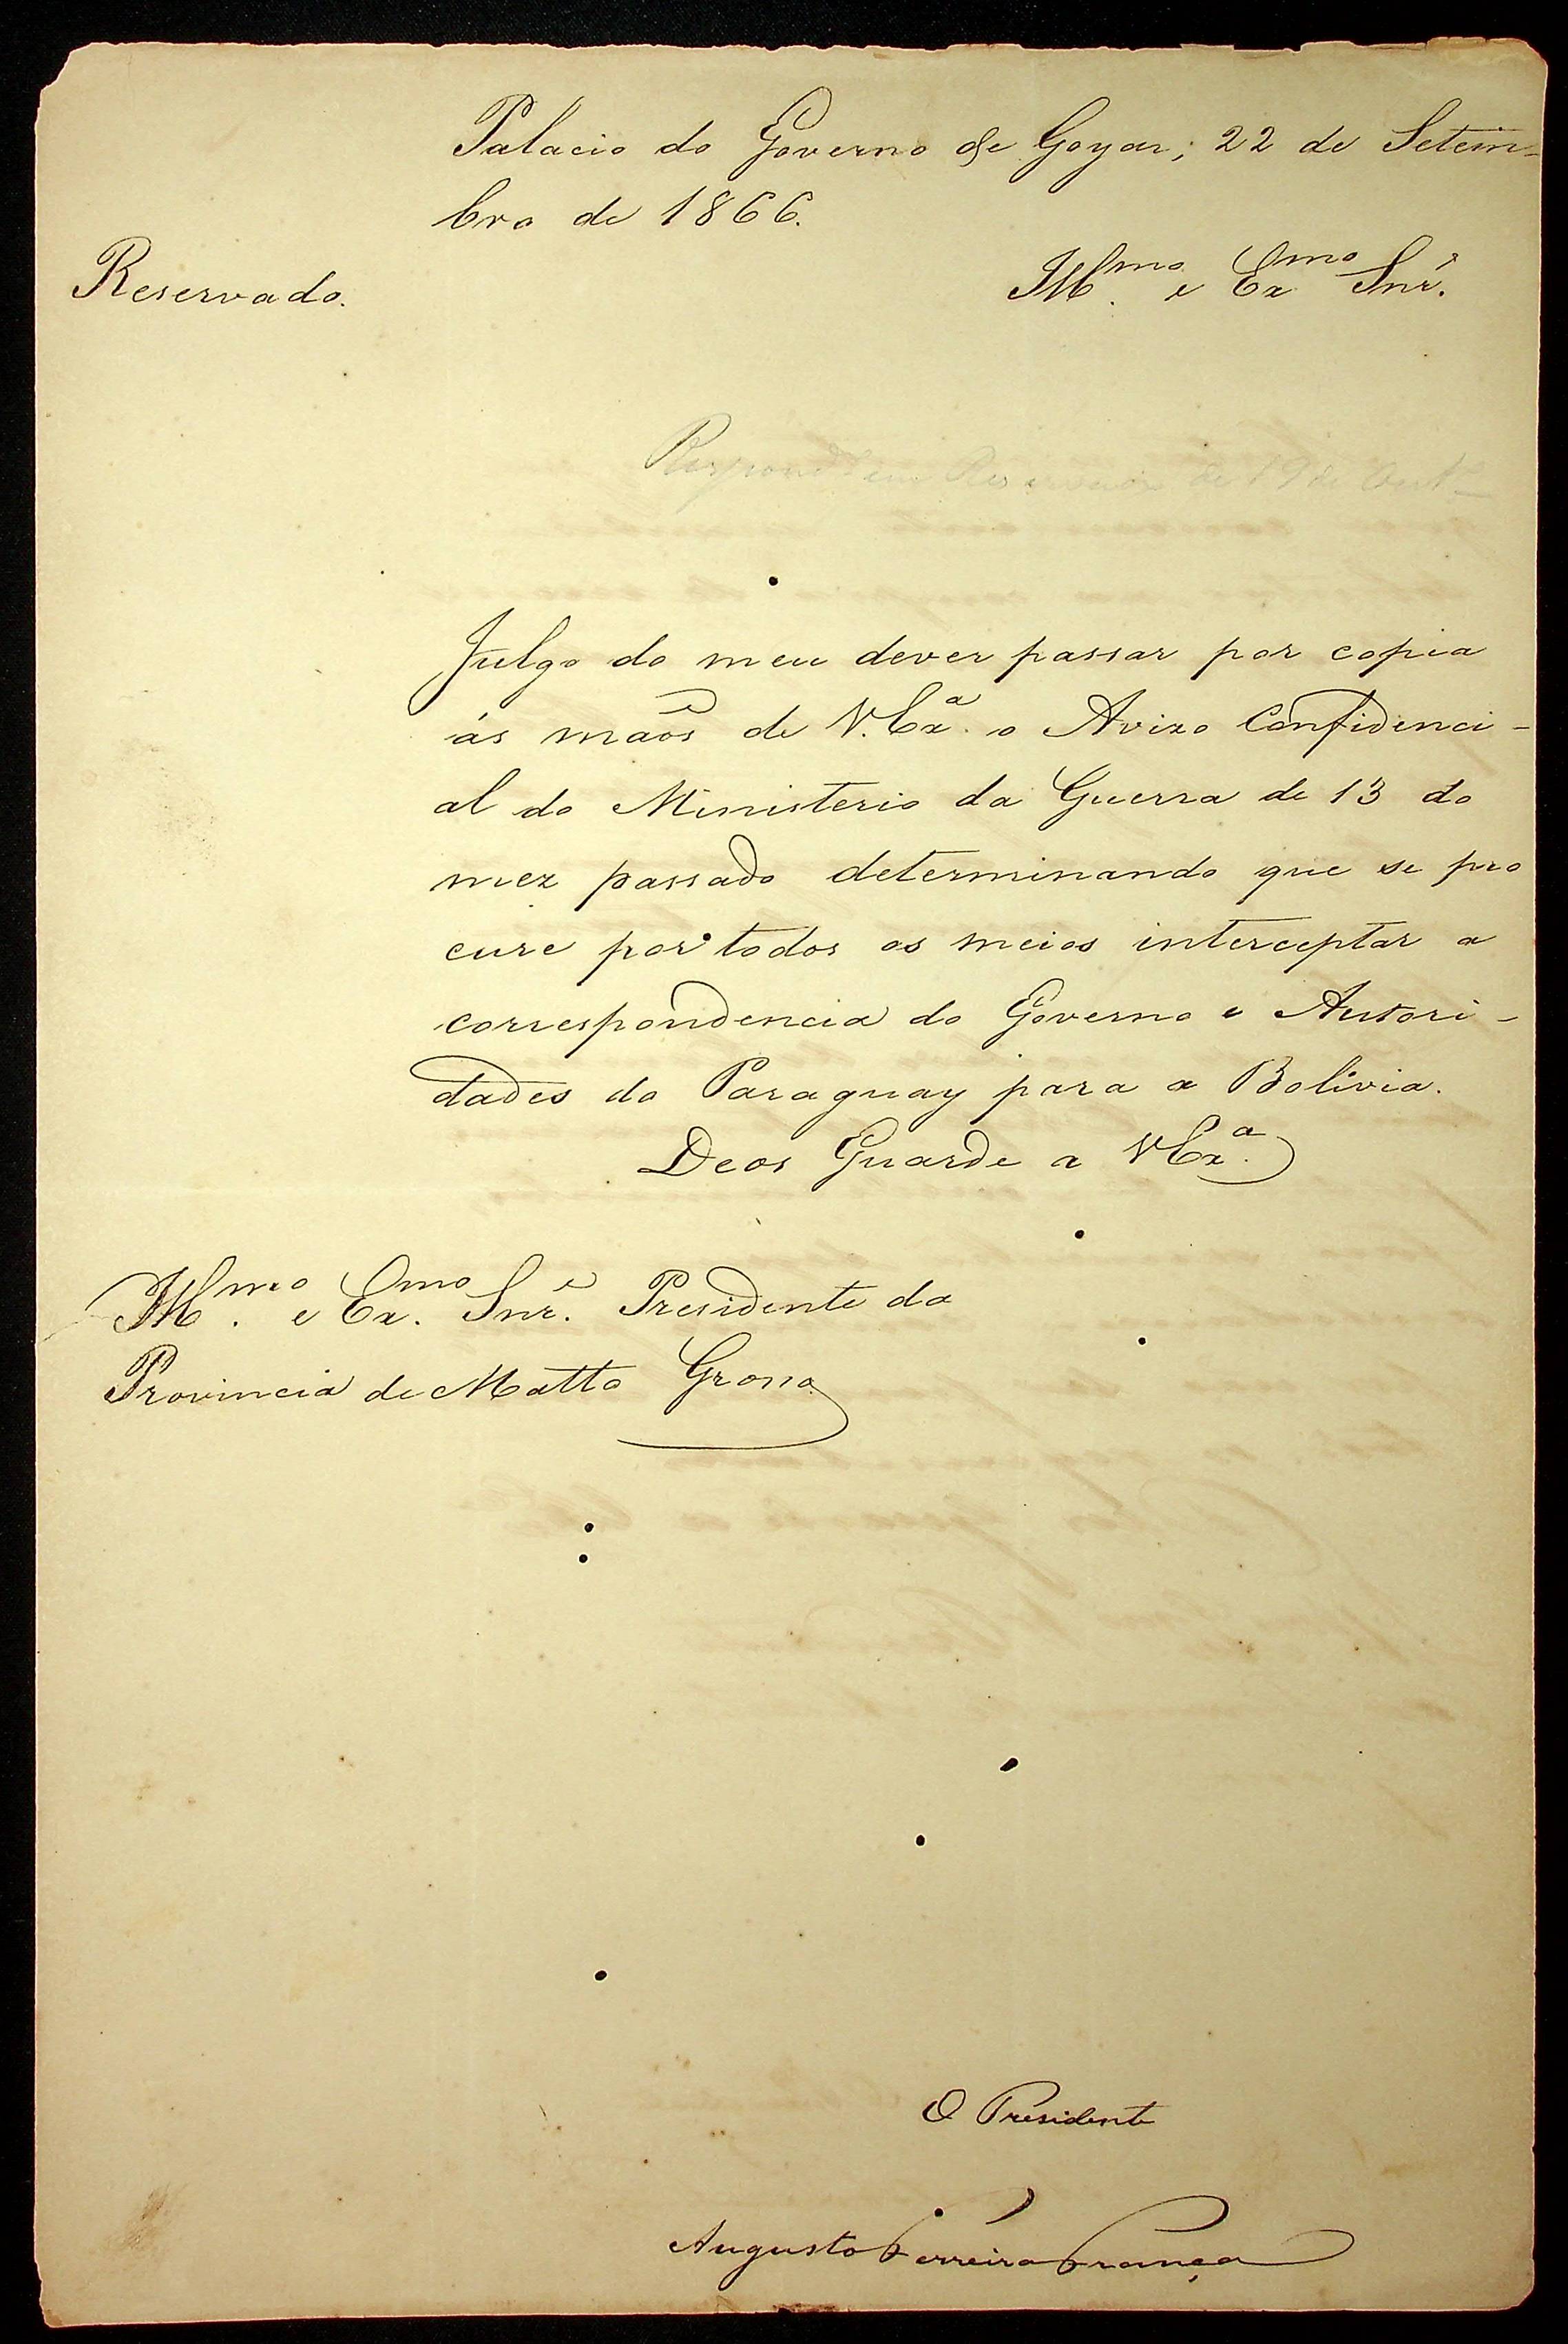 Palacio do Governo de Goyaz; 22 de Setem-
bro de 1866.
Reservado.
Illmo. e Exmo Snr.
Respondi em Reservado de 19 de Out
Julgo do meu dever passar por copia
ás maõs de V. Exa. o Avizo Confidenci-
al do Ministerio da Guerra de 13 do
mez passado determinando que se pro
cure por todos os meios interceptar a
correspondencia do Governo e Autori-
dades do Paraguay para a Bolivia.
Deos Guarde a VExa.
Illmo. e Exmo. Snr. Presidente da
Provincia de Matto Grosso
O Presidente
Augusto Ferreira França